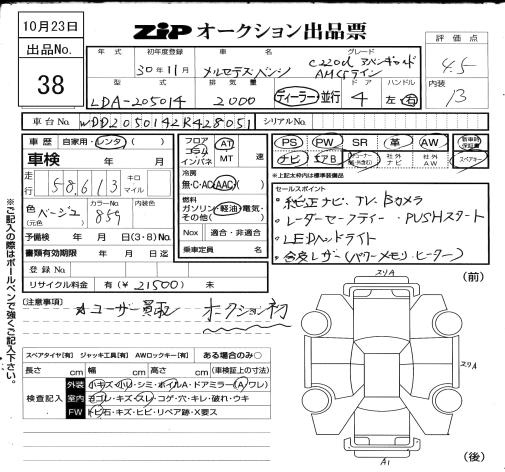 10月23日
ZiP オークション出品票
出品No.
38
年式
初年度登録
車名
グレード
評価点
30年11月
メルセデスベンツ
C220d アバンギャルド
AMGライン
4.5
型式
排気量
ドア
ハンドル
内装
LDA-205014
2000
ディーラー・並行
4
左・右
B
車台No.
WDD2050142R428051
シリアルNo.
車歴
自家用・レンタ( )
フロア
コラム
インパネ
AT
MT
速
PS
PW
SR
革
AW
新車時保証書
車検
年
月
ナビ
エアB
社外ナビ
社外AW
スペアキー
※上記太枠内は標準装備品
走行
58,613
キロ
マイル
冷房
無・C・AC・AAC( )
セールスポイント
燃料
ガソリン・軽油・電気・
その他( )
・純正ナビ、TV、Bカメラ
・レーダーセーフティー・PUSHスタート
・LEDヘッドライト
・合皮レザー(パワーメモリ・ヒーター)
色
(元色)
ベージュ
カラーNo.
859
内装色
予備検
年
月
日(3・8)No.
Nox
適合・非適合
書類有効期限
年
月
日迄
乗車定員
名
登録No.
リサイクル料金
有(¥21500)
未
(前)
(注意事項)
☆ユーザー買取
オークション初
スペアタイヤ[有]
ジャッキ工具[有]
AWロックキー[有]
ある場合のみ○
長さ
cm
幅
cm
高さ
cm
(車検証上の寸法)
検査記入
外装
小キズ・小凹・シミ・ホイルA・ドアミラー(A・ワレ)
室内
ヨゴレ・キズ・スレ・コゲ・穴・キレ・破れ・ウキ
FW
トビ石・キズ・ヒビ・リペア跡・X要ス
ヌリA
ヌリA
A1
(後)
※ご記入の際はボールペンで強くご記入下さい。